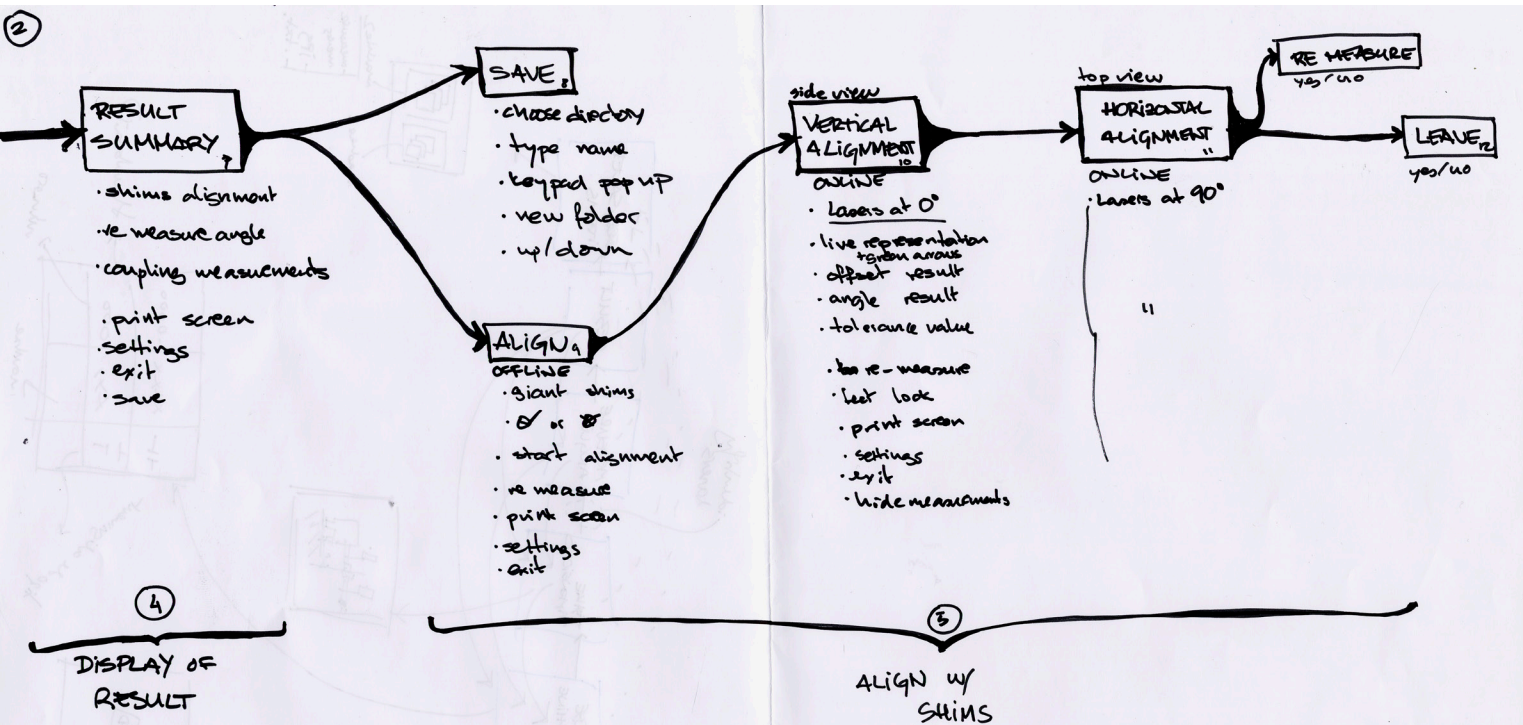 2
RESULT
SUMMARY
7
· shims alignment
· re measure angle
· coupling measurements
· print screen
· settings
· exit
· save
SAVE
8
· choose directory
· type name
· keypad pop up
· new folder
· up/down
ALIGN
9
OFFLINE
· giant shims
· or
· start alignment
· re measure
· print screen
· settings
· exit
side view
VERTICAL
ALIGNMENT
10
ONLINE
· Lasers at 0°
· live representation
+ green arrows
· offset result
· angle result
· tolerance value
· re-measure
· feet lock
· print screen
· settings
· exit
· hide measurements
top view
HORIZONTAL
ALIGNMENT
11
ONLINE
· Lasers at 90°
"
RE MEASURE
yes/no
LEAVE
12
yes/no
4
DISPLAY OF
RESULT
ALIGN W/
SHIMS